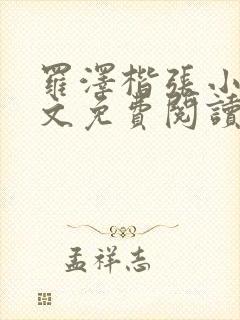 羅澤楷張小
文免費閱讀
孟祥志